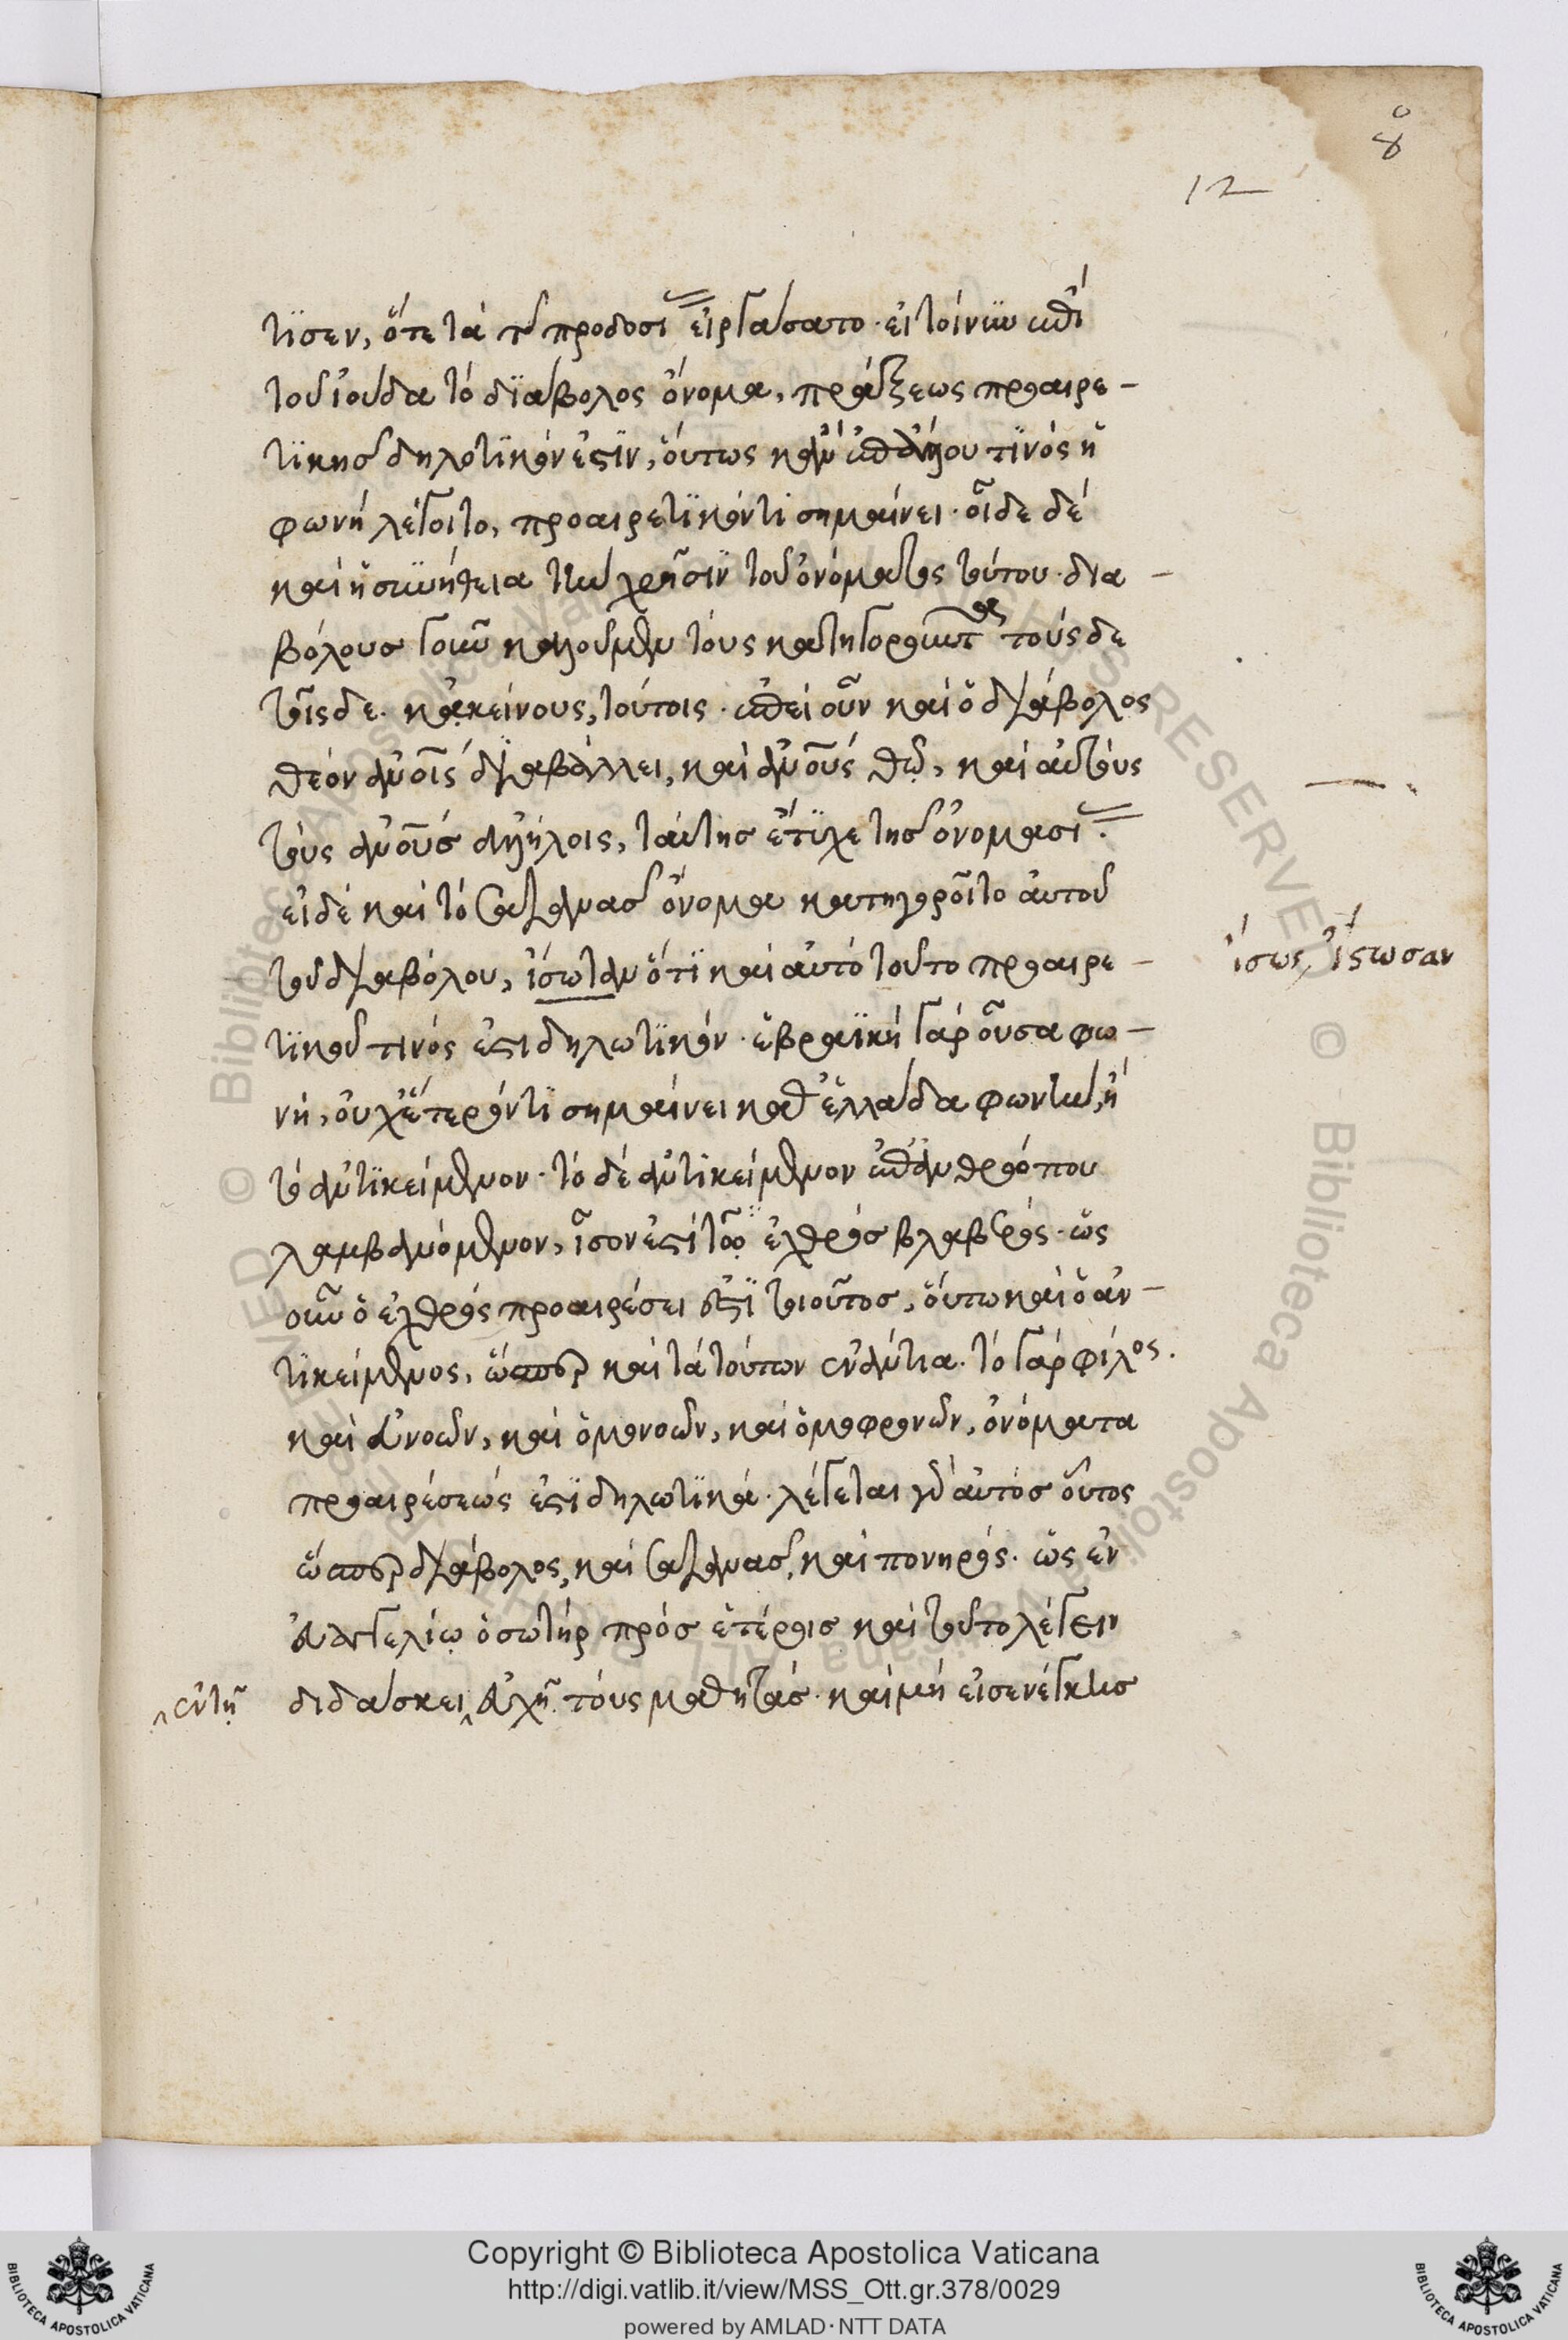 8
12
τισεν, ὅτε τὰ τῆς προδοσίας εἰργάσατο. εἰ τοίνυν ἐπὶ
τοῦ ἰούδα τό διάβολος ὄνομα, πράξεως προαιρε-
τικῆς δηλοτικόν ἐστιν, οὕτως κἂν ἐπ' ἄλλου τινός ἡ
φωνή λέγοιτο, προαιρετικόν τι σημαίνει. οἶδε δέ
καί ἡ συνήθεια τὴν χρῆσιν τοῦ ὀνόματος τούτου. δια-
βόλους γοῦν καλοῦμεν τούς κατηγοροῦντας τούς δε
τοῖς δε. κἀκείνους, τούτοις. ἐπεί οὖν καί ὁ διάβολος
θεόν ἀνοις διαβάλλει, καί ἀνους θῶ, καί αὐτούς
τούς ἀνους ἀλλήλοις, ταύτης ἔτυχε τῆς ὀνομασίας.
εἰ δέ καί τό σατανᾶς ὄνομα κατηγοροῖτο αὐτοῦ
τοῦ διαβόλου, ἰσώταν ὅτι καί αὐτό τοῦτο προαιρε-
ἴσως, ἴστωσαν
τικοῦ τινός ἐστι δηλωτικόν. ἑβραϊκή γάρ οὖσα φω-
νή, οὐχ ἕτερόν τι σημαίνει καθ' ἑλλάδα φωνήν, ἤ
τό ἀντικείμενον. τό δέ ἀντικείμενον ἐπ' ἀνθρώπου
λαμβανόμενον, ἴσον ἐστί τῷ ἐχθρός βλαβερός. ὡς
οὖν ὁ ἐχθρός προαιρέσει ἐστί τοιοῦτος, οὕτω καί ὁ ἀν-
τικείμενος, ὥσπερ καί τά τούτων ἐναντία. τό γάρ φίλος.
καί εὐνοῶν, καί ὁμονοῶν, καί ὁμοφρονῶν, ὀνόματα
προαιρέσεώς ἐστι δηλωτικά. λέγεται γὰρ αὐτός οὗτος
ὥσπερ διάβολος, καί σατανᾶς, καί πονηρός. ὡς ἐν
εὐαγγελίῳ ὁ σωτήρ πρός ἑτέροις καί τοῦτο λέγειν
διδάσκει ‸ εὐχῇ τούς μαθητάς. καί μή εἰσενέγκῃς
‸ ἐν τῇ